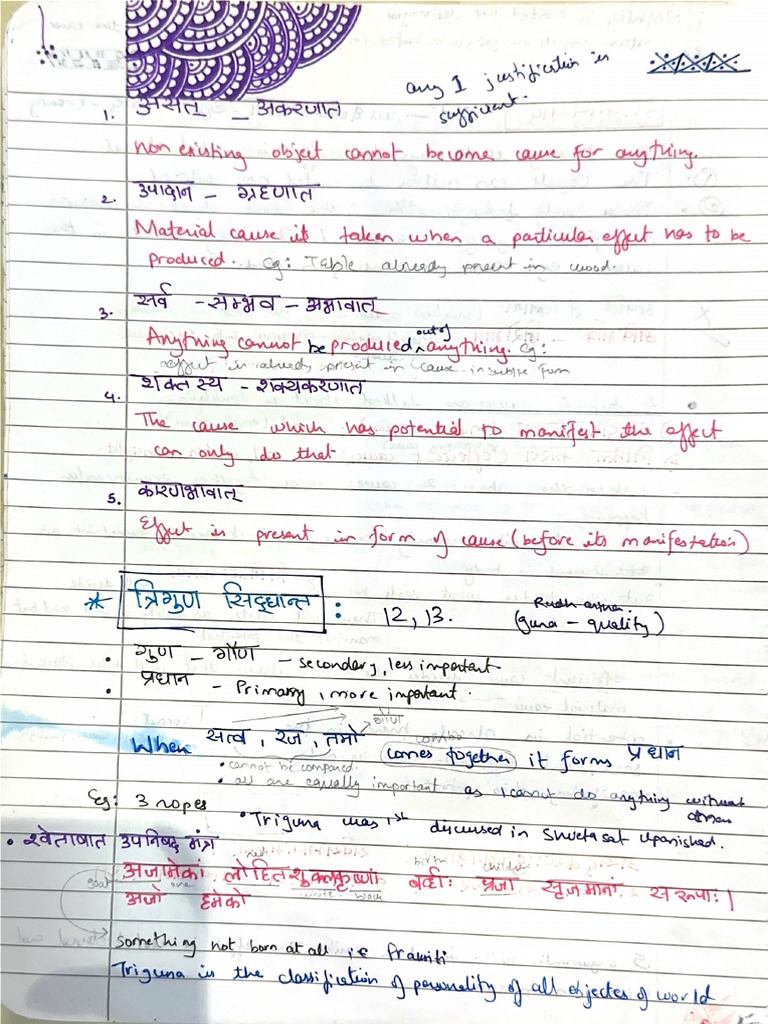 any 1 justification is
sufficient.
1. असत् - अकरणात
non existing object cannot become cause for anything.
2. उपादान - ग्रहणात
Material cause is taken when a particular effect has to be
produced. Eg: Table already present in wood.
3. सर्व - सम्भव - अभावात्
Anything cannot be produced out of anything. Eg:
effect is already present in cause in subtle form
4. शक्तस्य - शक्यकरणात
The cause which has potential to manifest the effect
can only do that
5. कारणभावात्
Effect is present in form of cause (before its manifestation)
* त्रिगुण सिद्धान्त : 12, 13. (guna - quality)
• गुण - गौण - secondary, less important.
• प्रधान - Primary, more important.
गौण
When सत्व, रज, तमो comes together it forms प्रधान
• cannot be compared.
• all are equally important as 1 cannot do anything without others
Eg: 3 ropes
• Triguna was 1st discussed in Shwetasat Upanishad.
• श्वेताषात उपनिषद मंत्र
birth
अजामेकां लोहितशुक्लकृष्णां बर्व्हीः प्रजा सृजमानां सरूपाः।
one white
अजो हमेको
something not born at all ie Prakriti
Triguna is the classification of personality of all objectes of world